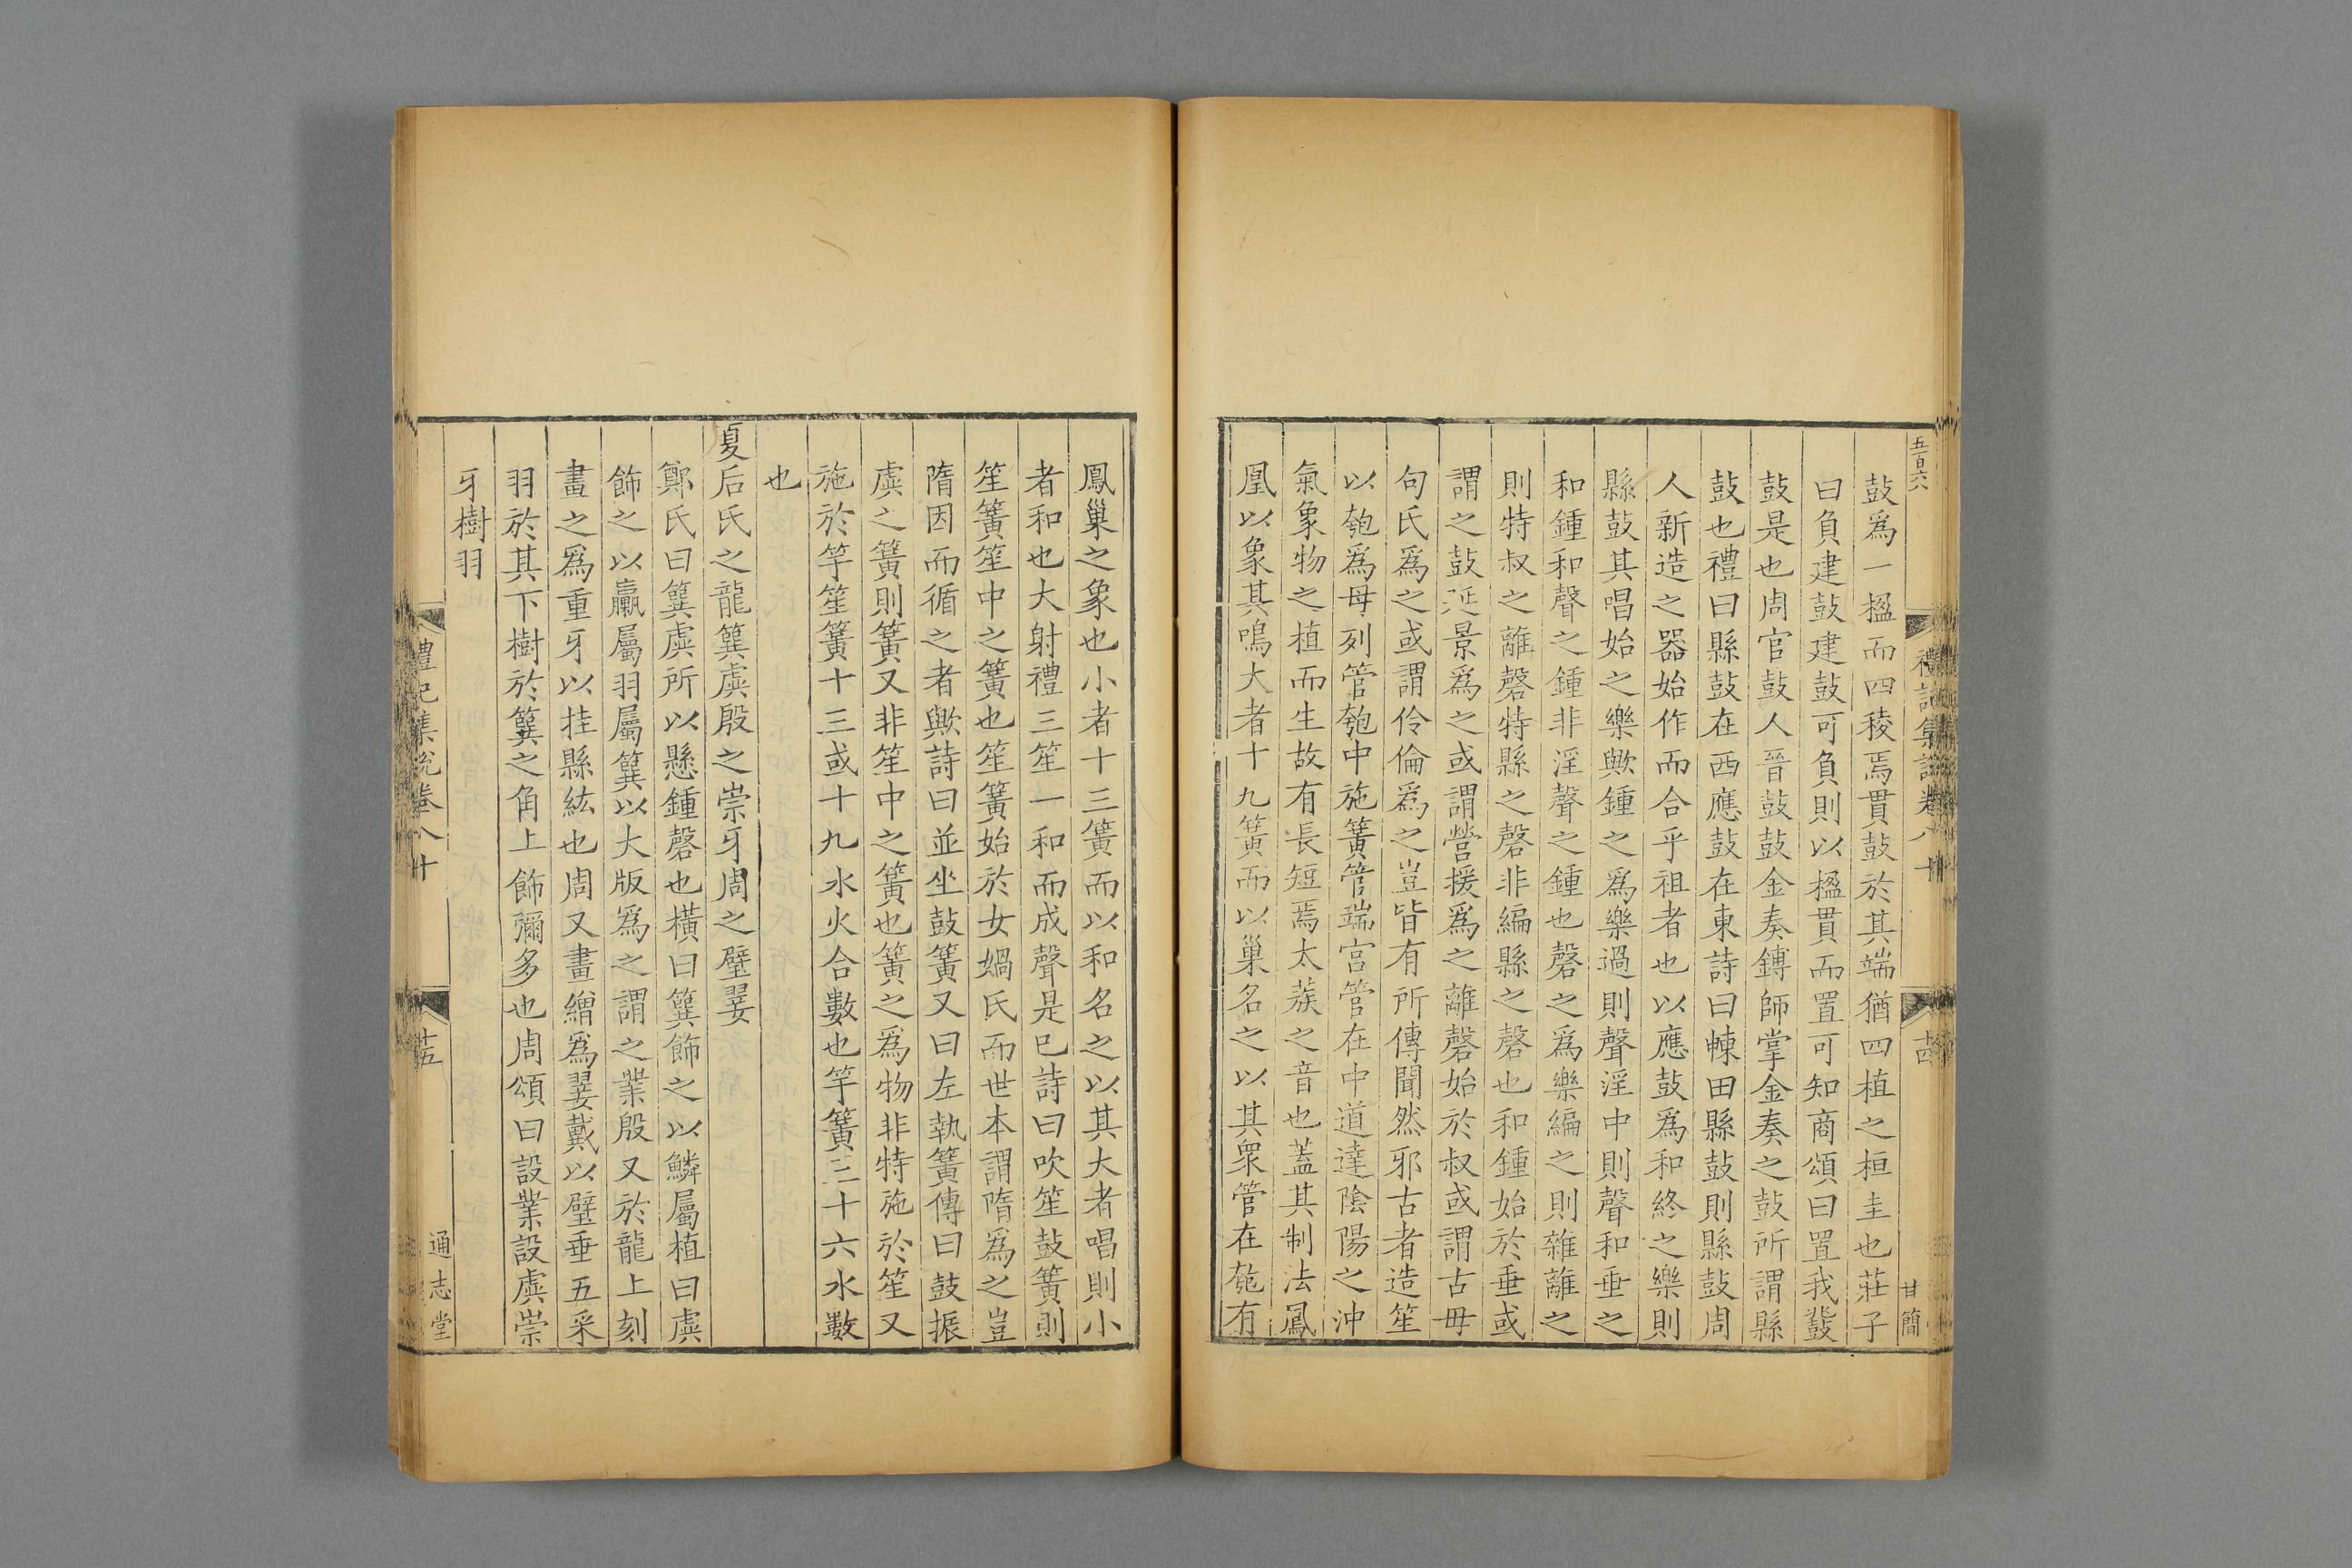 五百六
禮記集說卷八十
十四
甘簡
鼓爲一楹而四稜焉貫鼓於其端猶四植之桓圭也莊子
曰負建鼓建鼓可負則以楹貫而置可知商頌曰置我鼗
鼓是也周官鼓人晉鼓鼓金奏鎛師掌金奏之鼓所謂縣
鼓也禮曰縣鼓在西應鼓在東詩曰朄田縣鼓則縣鼓周
人新造之器始作而合乎祖者也以應鼓爲和終之樂則
縣鼓其唱始之樂歟鍾之爲樂過則聲淫中則聲和垂之
和鍾和聲之鍾非淫聲之鍾也磬之爲樂編之則雜離之
則特叔之離磬特縣之磬非編縣之磬也和鍾始於垂或
謂之鼓延景爲之或謂營援爲之離磬始於叔或謂古毋
句氏爲之或謂伶倫爲之豈皆有所傳聞然邪古者造笙
以匏爲母列管匏中施簧管端宮管在中道達陰陽之沖
氣象物之植而生故有長短焉太蔟之音也蓋其制法鳳
凰以象其鳴大者十九簧而以巢名之以其衆管在匏有
鳳巢之象也小者十三簧而以和名之以其大者唱則小
者和也大射禮三笙一和而成聲是已詩曰吹笙鼓簧則
笙簧笙中之簧也笙簧始於女媧氏而世本謂隋爲之豈
隋因而循之者歟詩曰並坐鼓簧又曰左執簧傳曰鼓振
虡之簧則簧又非笙中之簧也簧之爲物非特施於笙又
施於竽笙簧十三或十九水火合數也竽簧三十六水數
也
夏后氏之龍簨虡殷之崇牙周之璧翣
鄭氏曰簨虡所以懸鍾磬也橫曰簨飾之以鱗屬植曰虡
飾之以臝屬羽屬簨以大版爲之謂之業殷又於龍上刻
畫之爲重牙以挂縣紘也周又畫繒爲翣戴以璧垂五采
羽於其下樹於簨之角上飾彌多也周頌曰設業設虡崇
牙樹羽
禮記集說卷八十
十五
通志堂